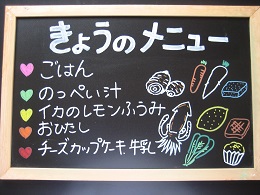 きょうのメニュー
ごはん
のっぺい汁
イカのレモンふうみ
おひたし
チーズカップケーキ 牛乳